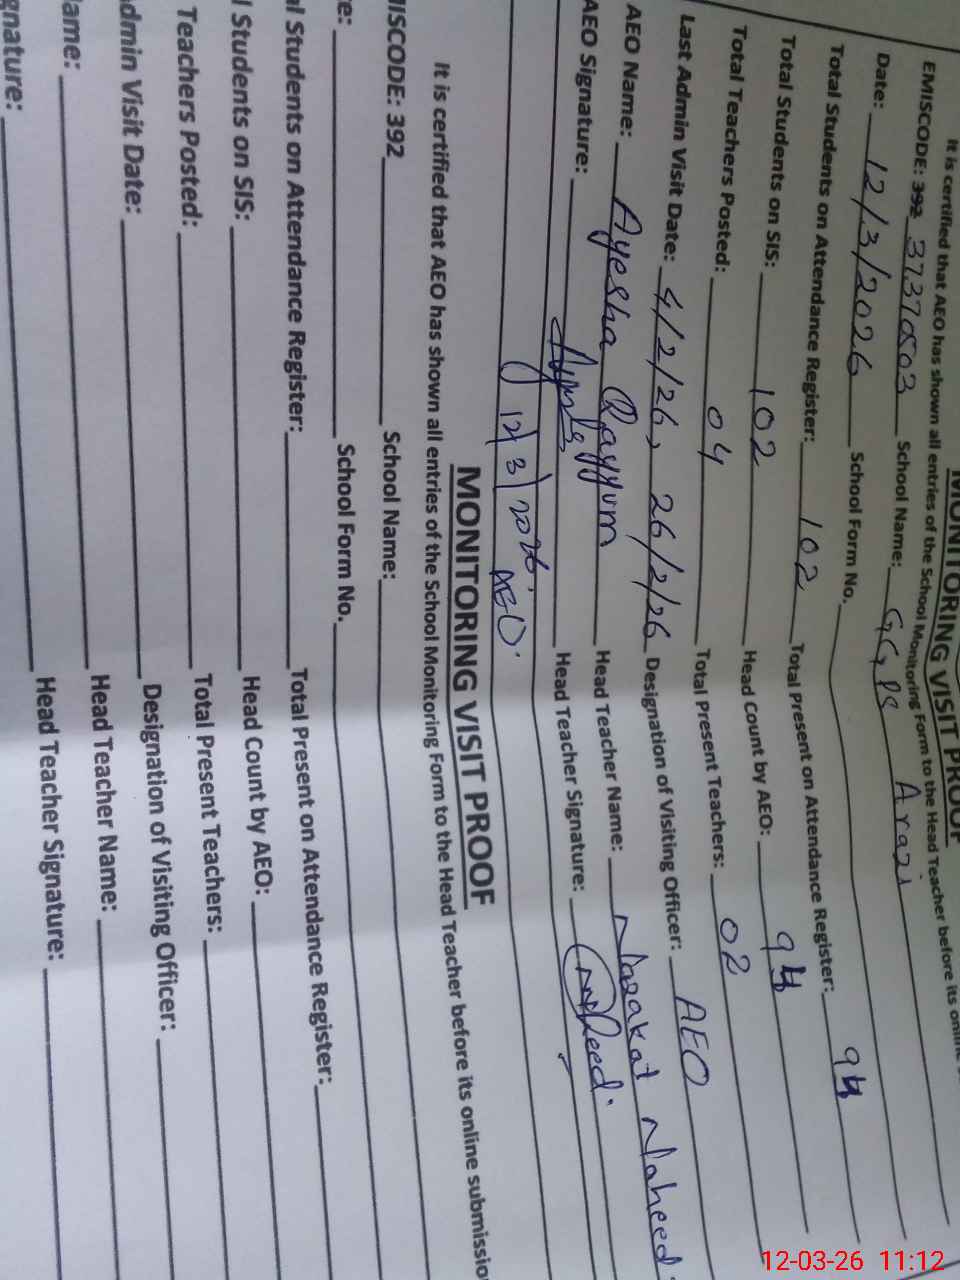 MONITORING VISIT PROOF
It is certified that AEO has shown all entries of the School Monitoring Form to the Head Teacher before its online
EMISCODE: 392 37370503 School Name: GGPS Arazi
Date: 12/3/2026 School Form No.
Total Students on Attendance Register: 102 Total Present on Attendance Register: 94
Total Students on SIS: 102 Head Count by AEO: 94
Total Teachers Posted: 04 Total Present Teachers: 02
Last Admin Visit Date: 4/2/26, 26/2/26 Designation of Visiting Officer: AEO
AEO Name: Ayesha Qayyum Head Teacher Name: Nazakat Naheed
AEO Signature: Head Teacher Signature:
12/3/2026
AEO.
MONITORING VISIT PROOF
It is certified that AEO has shown all entries of the School Monitoring Form to the Head Teacher before its online submissio
ISCODE: 392 School Name:
e: School Form No.
al Students on Attendance Register: Total Present on Attendance Register:
l Students on SIS: Head Count by AEO:
Teachers Posted: Total Present Teachers:
dmin Visit Date: Designation of Visiting Officer:
ame: Head Teacher Name:
gnature: Head Teacher Signature:
12-03-26 11:12